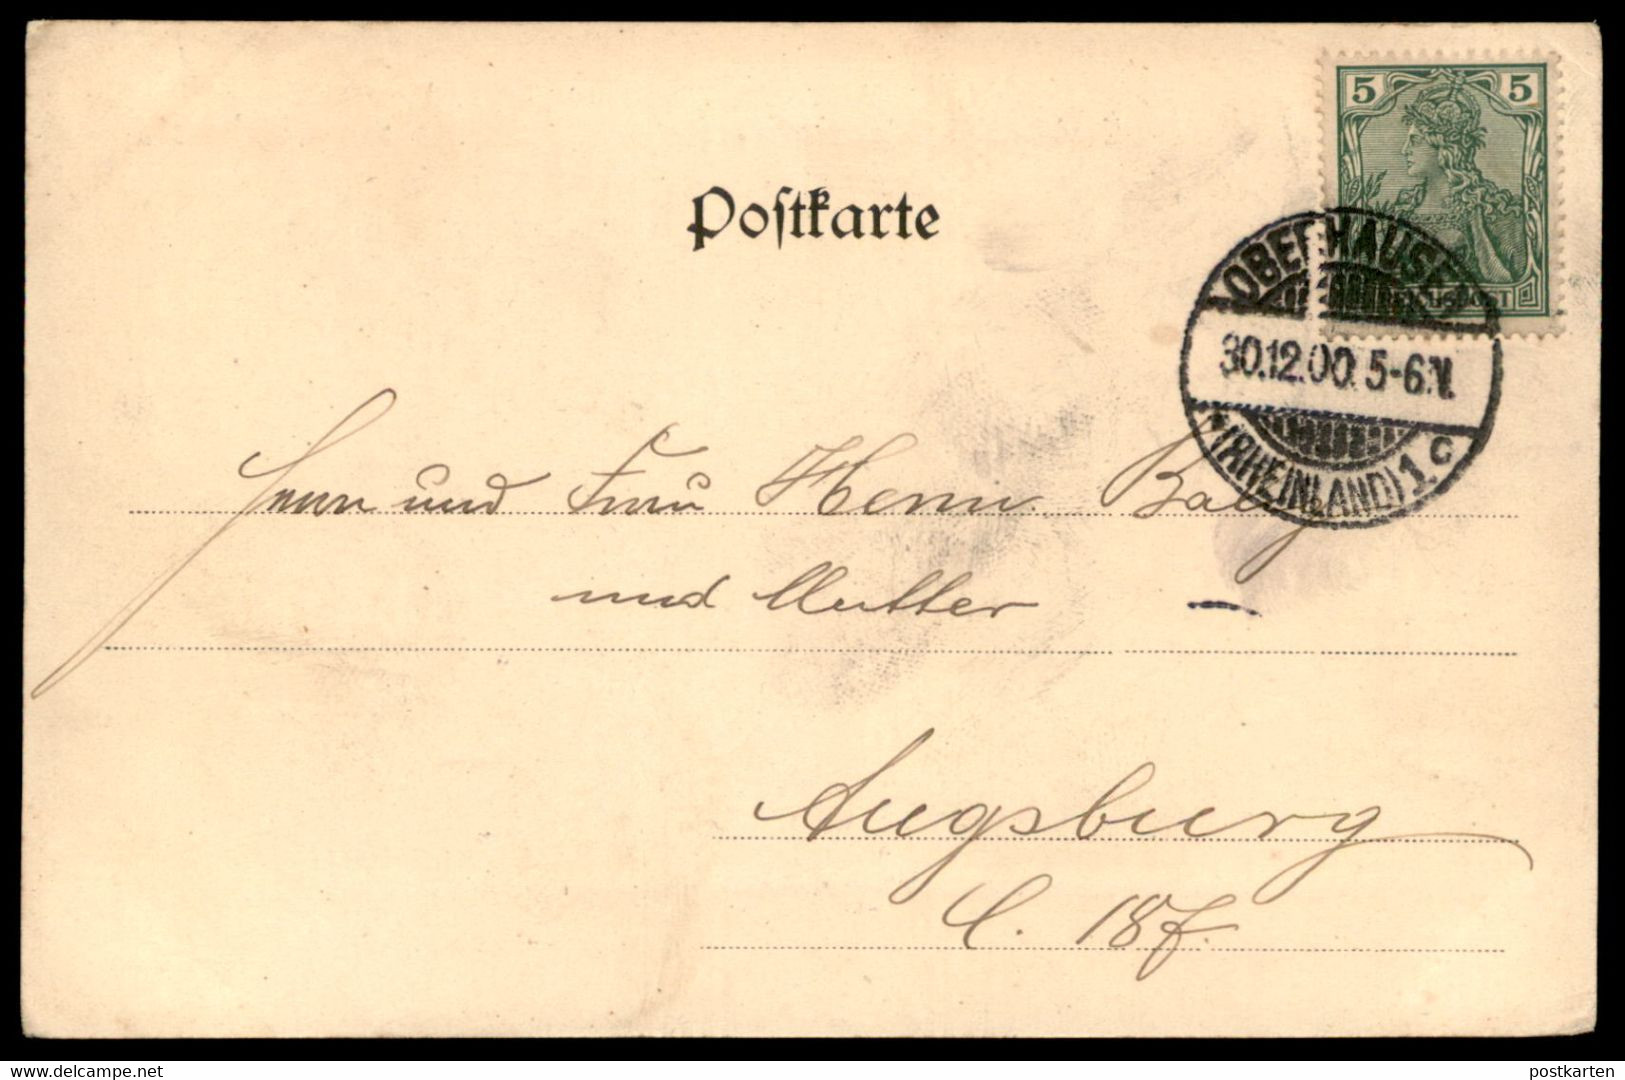 Postkarte
5 5
REICHSPOST
OBERHAUSEN
30.12.00. 5-6.V.
(RHEINLAND) 1 c
Herrn und Frau Herm.
und Mutter
Augsburg
C. 187.
www.delcampe.net
postkarten